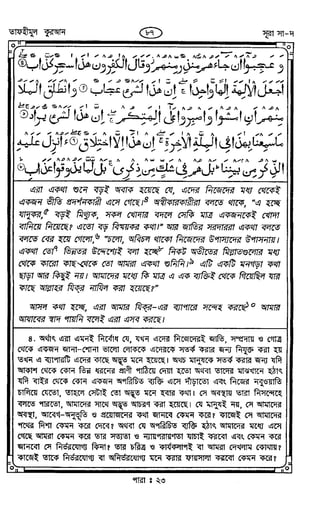 তাফহীমুল কুরআন
৮৭
সূরা সা-দ
وَعَجِبُوٓا اَنْ جَآءَهُمْ مُّنْذِرٌ مِّنْهُمْ وَقَالَ الْكٰفِرُوْنَ هٰذَا سٰحِرٌ كَذَّابٌ
اَجَعَلَ الْاٰلِهَةَ اِلٰهًا وَّاحِدًا اِنَّ هٰذَا لَشَىْءٌ عُجَابٌ وَانْطَلَقَ الْمَلَاُ
مِنْهُمْ اَنِ امْشُوْا وَاصْبِرُوْا عَلٰٓى اٰلِهَتِكُمْ اِنَّ هٰذَا لَشَىْءٌ يُّرَادُ
مَا سَمِعْنَا بِهٰذَا فِى الْمِلَّةِ الْاٰخِرَةِ اِنْ هٰذَآ اِلَّا اخْتِلَاقٌ ءَاُنْزِلَ عَلَيْهِ
الذِّكْرُ مِنْۢ بَيْنِنَا بَلْ هُمْ فِىْ شَكٍّ مِّنْ ذِكْرِىْ بَلْ لَّمَّا يَذُوْقُوْا عَذَابِ
এরা একথা শুনে বড়ই অবাক হয়েছে যে, এদের নিজেদের মধ্য থেকেই
একজন ভীতি প্রদর্শনকারী এসে গেছে।৪ অস্বীকারকারীরা বলতে থাকে, "এ হচ্ছে
যাদুকর,৫ বড়ই মিথ্যুক, সকল খোদার বদলে সেকি মাত্র একজনকেই খোদা
বানিয়ে নিয়েছে? এতো বড় বিস্ময়কর কথা।" আর জাতির সরদাররা একথা বলতে
বলতে বের হয়ে গেলো,৬ "চলো, অবিচল থাকো নিজেদের উপাস্যদের উপাসনায়।
একথা তো৭ ভিন্নতর উদ্দেশ্যেই বলা হচ্ছে৮ নিকট অতীতের মিল্লাতগুলোর মধ্য
থেকে কারো কাছ-থেকে তো আমরা একথা শুনিনি।৯ এটি একটি মনগড়া কথা
ছাড়া আর কিছুই নয়। আমাদের মধ্যে কি মাত্র এ এক ব্যক্তিই থেকে গিয়েছিল যার
কাছে আল্লাহর যিক্‌র নাযিল করা হয়েছে?"
আসল কথা হচ্ছে, এরা আমার যিক্‌র-এর ব্যাপারে সন্দেহ করছে১০ আমার
আযাবের স্বাদ পায়নি বলেই এরা এসব করছে।
৪. অর্থাৎ এরা এমনই নির্বোধ যে, যখন এদের নিজেদেরই জাতি, সম্প্রদায় ও গোত্র
থেকে একজন জানা-শোনা ভালো লোককে এদেরকে সতর্ক করার জন্য নিযুক্ত করা হয়
তখন এ ব্যাপারটি এদের কাছে অদ্ভুত মনে হয়েছে। অথচ মানুষকে সতর্ক করার জন্য যদি
আকাশ থেকে কোন ভিন্ন ধরনের প্রাণী পাঠিয়ে দেয়া হতো অথবা তাদের মাঝখানে হঠাৎ
যদি বাইর থেকে কোন একজন অপরিচিত ব্যক্তি এসে দাঁড়াতো এবং নিজের নবুওয়াতি
চালিয়ে যেতো, তাহলে সেটাই তো অদ্ভুত মনে হবার কথা। সে অবস্থায় তারা নিসন্দেহে
বলতে পারতো, আমাদের সাথে অদ্ভুত আচরণ করা হয়েছে। যে মানুষই নয়, সে আমাদের
অবস্থা, আবেগ-অনুভূতি ও প্রয়োজনের কথা জানবে কেমন করে? কাজেই সে আমাদের
পথের দিশা কেমন করে দেবে? অথবা যে অপরিচিত ব্যক্তি হঠাৎ আমাদের মধ্যে এসে
গেছে আমরা কেমন করে তার সত্যতা ও ন্যায়পরায়ণতা যাচাই করবো এবং কেমন করে
জানবো সে নির্ভরযোগ্য কিনা? তার চরিত্র ও কার্যকলাপই বা আমরা দেখলাম কোথায়?
কাজেই তাকে নির্ভরযোগ্য বা অনির্ভরযোগ্য মনে করার ফায়সালা করবো কেমন করে?
পারা : ২৩